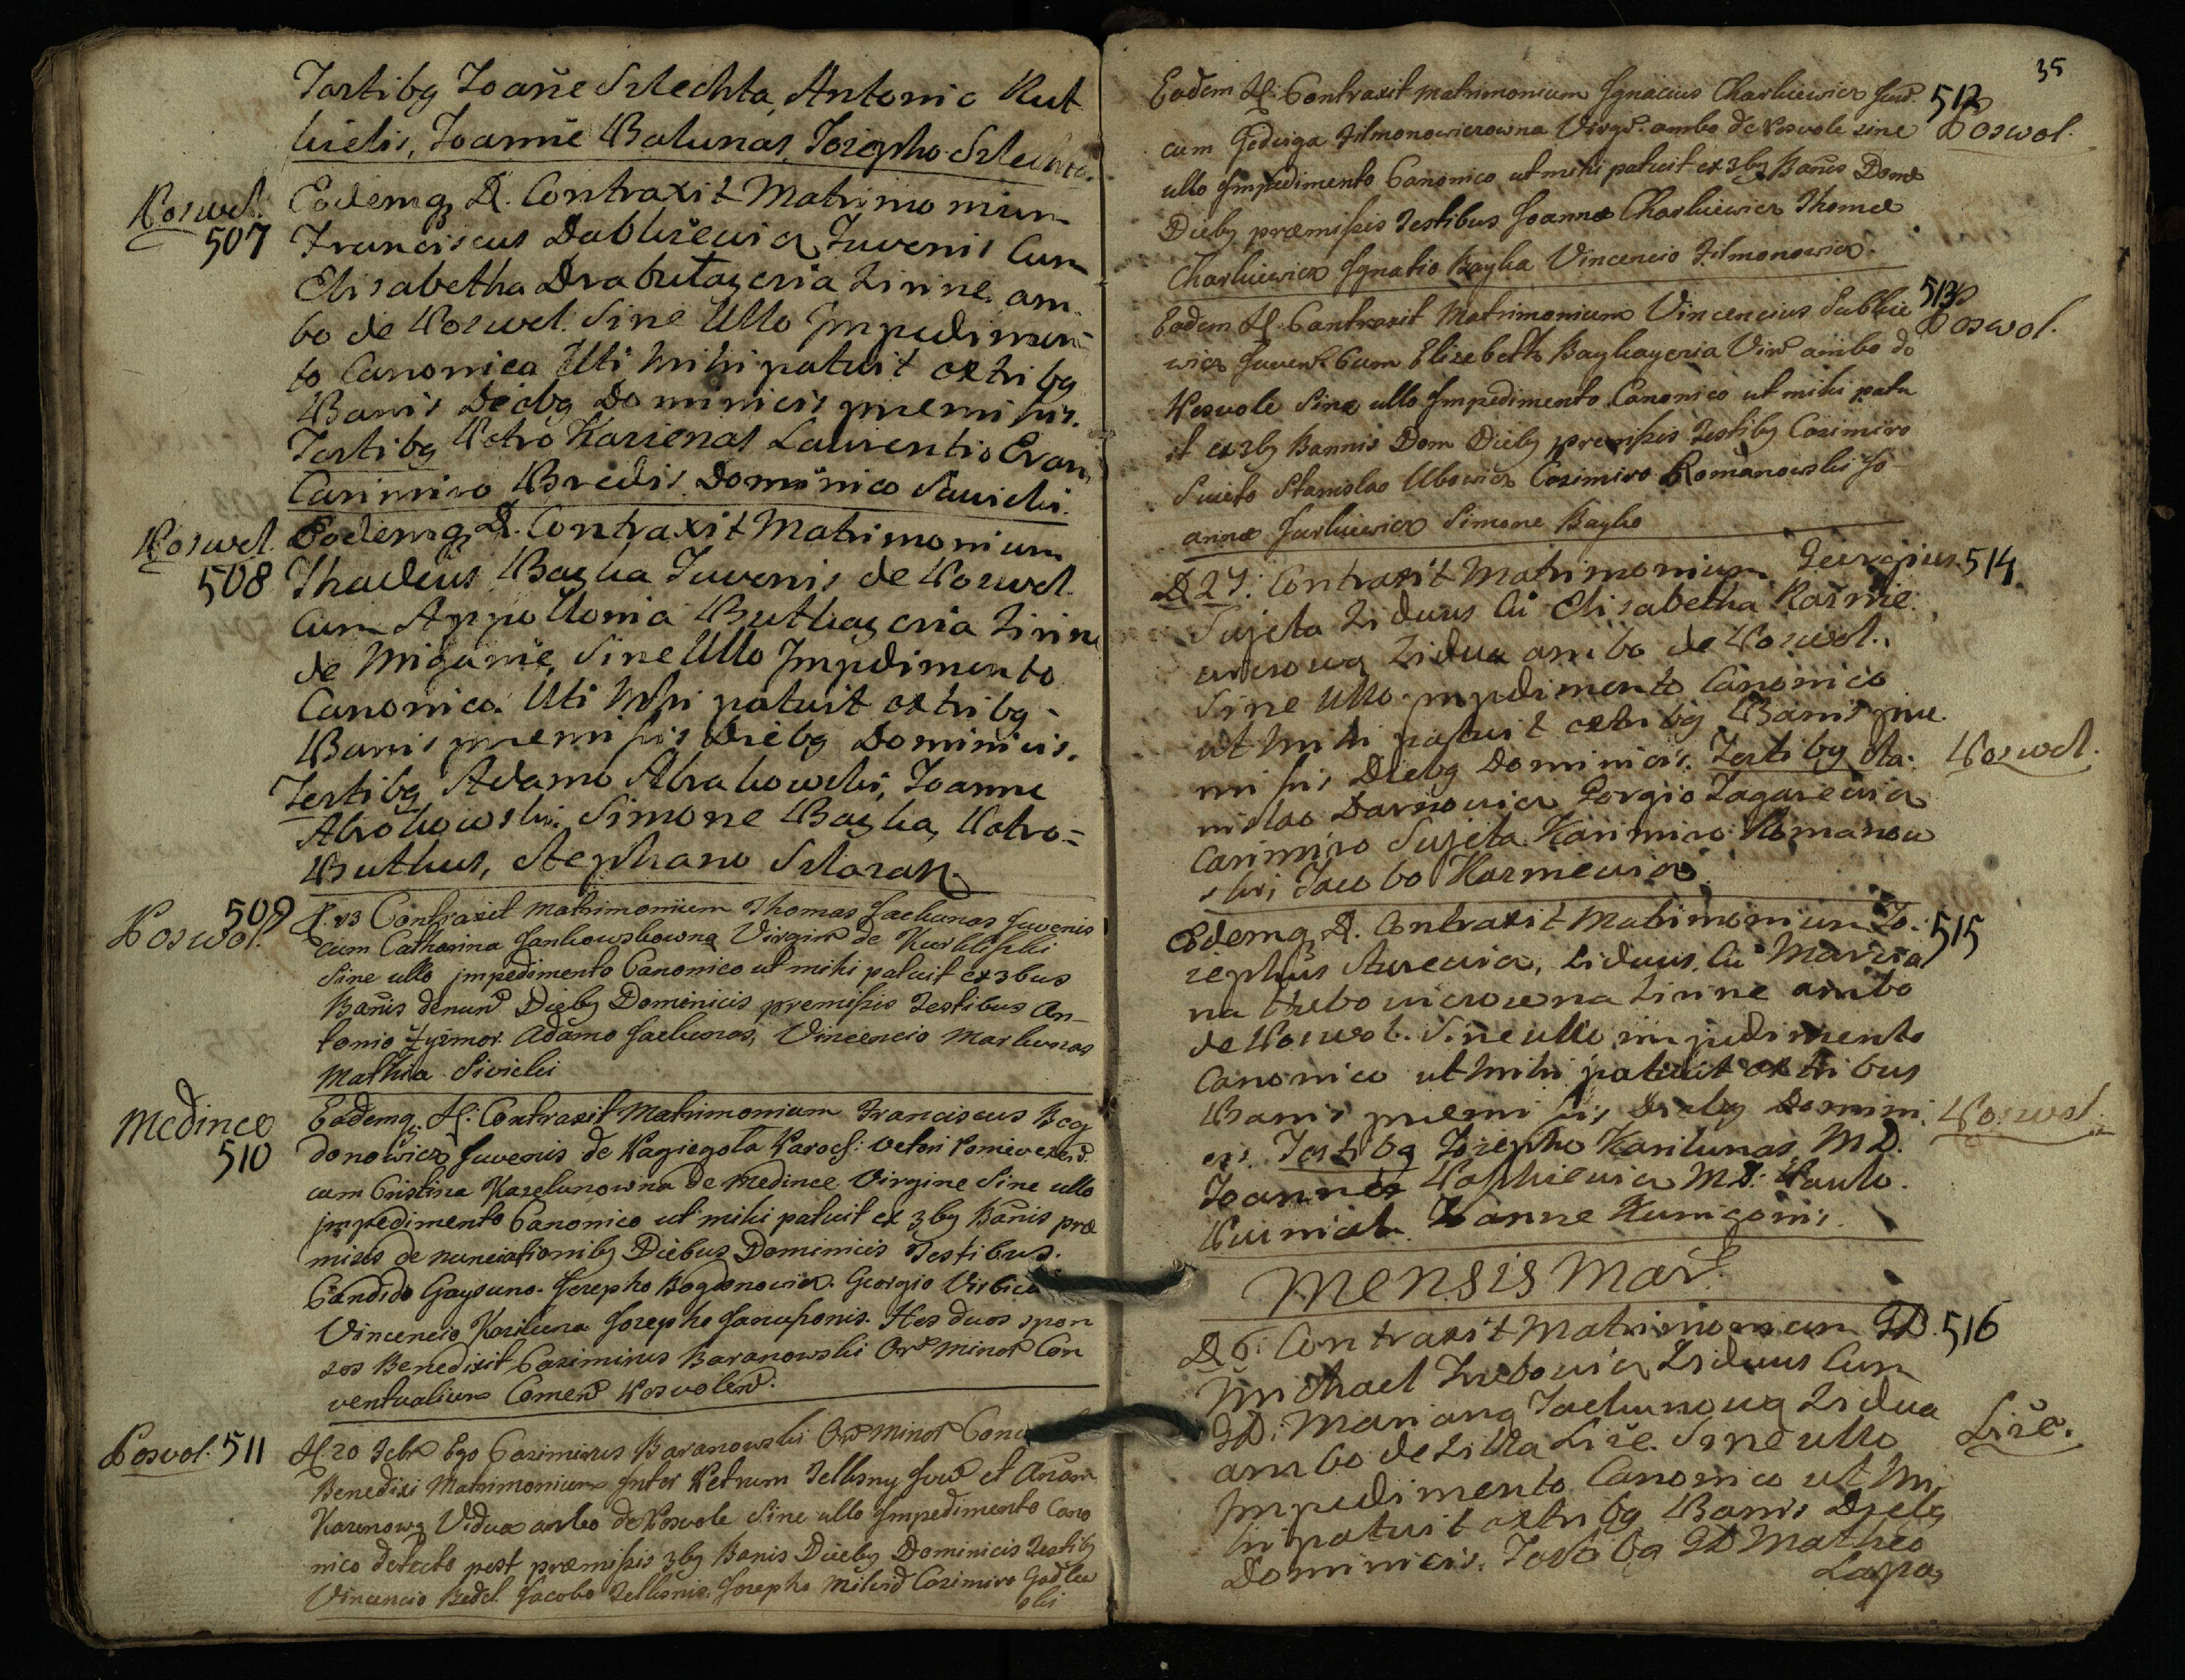 Testibg Joane Szlechta, Antonio Rut
kielis, Joanne Balunas, Josepho Szlechta.
Poswol.
507
Eodemq D. Contraxit Matrimonium
Franciscus Dablkiewicz Juvenis Cum
Elisabetha Drabutaycia Virine am
bo de Poswol. Sine Ullo Impedimen
to Canonico Uti Mihi patuit ex tribg
Banis Diebg Dominicis premissis.
Testibg Petro Karienas Laurentio Evan
Casimiro Bredis Dominico Savicki.
Poswol.
508
Eodemq D. Contraxit Matrimonium
Thadeus Baglia Juvenis de Poswol.
Cum Appollonia Butkaycia Virine
de Migunie, Sine Ullo Impdimento
Canonico. Uti Mihi patuit ex tribg
Banis premissis Diebg Dominicis.
Testibg Adamo Abrakowski, Joanne
Abrokowski, Simone Baglia, Petro=
Buthus, Stephano Szlazak
509
Poswol.
D. 13 Contraxit Matrimonium Thomas Jackunas Juvenis
cum Catharina Jankowskowna Virgine de Kurkliszki
Sine ullo jmpedimento Canonico ut mihi patuit ex 3bus
Banis denund Diebg Dominicis premissis Testibus An-
tonio Zyzmor. Adamo Jackunas, Vincencio Markunas
Mathia Sivicki
Medince
510
Eademq D: Contraxit Matrimonium Franciscus Bog
donowicz Juvenis de Nagiegola Paroch: Veteri Poniewezen.
cum Cristina Kazelunowna de Medince Virgine Sine ullo
jmpedimento Canonico ut mihi patuit ex 3bg Banis præ
misis denunciationibg Diebus Dominicis Testibus.
Candido Gaysuno. Josepho Bogdonowicz. Georgio Virbic
Vincencio Kariluna Josepho Januszonis. Hos duos spon
sos Benedixit Casimirus Baranowski Ord Minor Con
ventualium Comend Poswolen.
Poswol. 511
D. 20 Febr Ego Casimirus Baranowski Ord Minor Conv
Benedixi Matrimonium Inter Petrum Tellisny Juv et Annam
Kazenowg Vidua ambo de Poswole Sine ullo Impedimento Cano
nico detecto post præmissis 3bg Banis Diebg Dominicis Testibg
Vincencio Bedel. Jacobo Tellisnis. Josepho Milvid Casimiro Godlew
ski
35
Eodem D: Contraxit matrimonium Ignacius Charkiewicz Juv. 512
Poswol.
cum Jedviga Filmonowiczowna Virgi. ambo de Poswole sine
ullo Impedimento Canonico ut mihi patuit ex 3bg Banis Dom
Diebg præmissis Testibus Joanne Charkiewicz Thoma
Charkiewicz Ignatio Baglia Vincencio Filmonowicz.
513
Poswol.
Eodem D. Contraxit Matrimonium Vincencius Dublkie
wicz Juven. Cum Elizebeth Bagliaycia Vir ambo de
Poswole Sine ullo Impedimento Canonico ut mihi patu
it ex 3bg Bannis Dom Diebg premissis Testibg Casimiro
Suieto Stanislao Ubowicz Casimiro Romanowski Jo-
anne Jurkiewicz Simone Baglio
D 27: Contraxit Matrimonium Georgius 514
Sujeta Viduus Cu Elisabetha Kazmie.
wiczowg Vidua ambo de Poswol.
Sine Ullo jmpdimento Canonico
ut Mihi patuit ex tribg Banis pre.
missis Diebg Dominicis. Testibg Sta. Poswol.
nislao Darnowicz Gorgio Zagarewicz
Casimiro Sujeta Kazimiro Romanow
ski, Jacobo Kazmiewicz.
Edemq D. Contraxit Matrimonium Jo. 515
zephus Aurewicz, Viduus, Cu Marcia
na Trebowiczowna Virine ambo
de Poswol. Sine ullo impedimento
Canonico ut Mihi patuit ex tribus
Banis premissis Diebg Domini. Poswol.
cis. Testibg Josepho Karilunas, MD.
Joannes Waszkiewicz MD: Paulo.
Puiniel. Joanne Kumgonis.
Mensis Mar.
D 6: Contraxit Matrimonium GD. 516
Michael Trebowicz Viduus Cum
GD: Mariana Jackunowg Vidua
ambo de Villa Lize. Sine ullo Lize.
Impedimento Canonico ut Mi
hi patuit ex tribg Banis Diebg
Dominicis. Testibg GD Matheo
Lapas